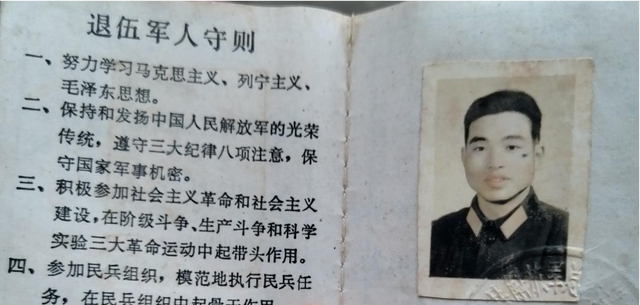 退伍军人守则
一、努力学习马克思主义、列宁主义、
毛泽东思想。
二、保持和发扬中国人民解放军的光荣
传统，遵守三大纪律八项注意，保
守国家军事机密。
三、积极参加社会主义革命和社会主义
建设，在阶级斗争、生产斗争和科学
实验三大革命运动中起带头作用。
四、参加民兵组织，模范地执行民兵任
务，在民兵组织中起骨干作用。